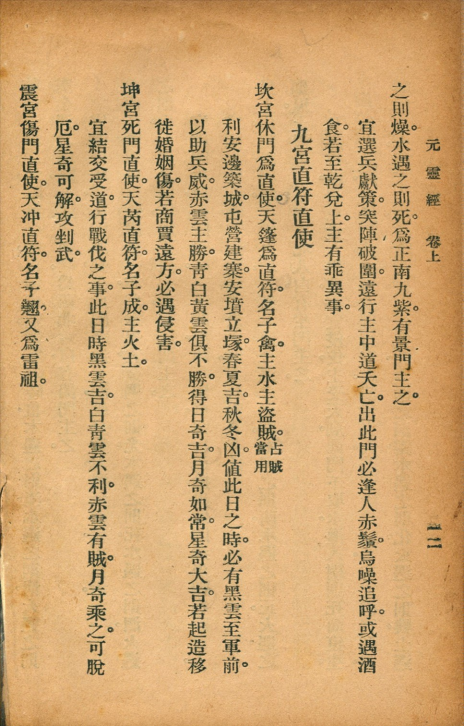 元靈經 卷上 一二
之則燥。水遇之則死。爲正南九紫。有景門主之。
宜選兵獻策。突陣破圍。遠行主中道夭亡。出此門必逢人赤鬚。烏噪追呼。或遇酒
食。若至乾兌上。主有乖異事。
九宮直符直使
坎宮休門爲直使。天篷爲直符。名子禽。主水主盜賊。占賊當用
利安邊築城。屯營建寨。安墳立塚。春夏吉。秋冬凶。値此日之時。必有黑雲至軍前。
以助兵威。赤雲主勝。青白黃雲俱不勝。得日奇吉。月奇如常。星奇大吉。若起造移
徙婚姻傷。若商賈遠方。必遇侵害。
坤宮死門直使。天芮直符。名子成。主火土。
宜結交受道。行戰伐之事。此日時黑雲吉。白青雲不利。赤雲有賊。月奇乘之。可脫
厄。星奇可解。攻剉武。
震宮傷門直使。天沖直符。名子翹。又爲雷祖。